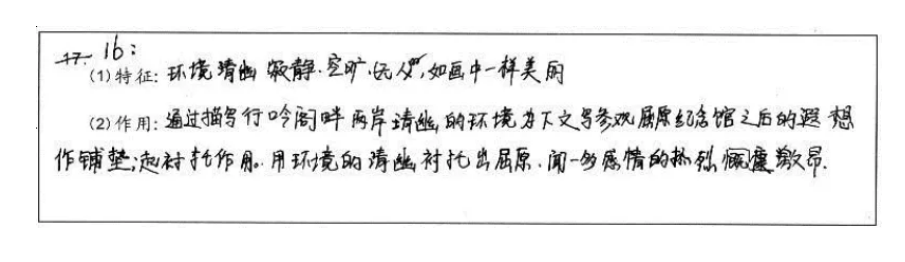 17. 16:
(1)特征: 环境清幽 寂静.空旷.无人,如画中一样美丽
(2)作用: 通过描写行吟阁畔两岸清幽的环境为下文写参观屈原纪念馆之后的遐想
作铺垫;起衬托作用。用环境的清幽衬托出屈原.闻一多感情的热烈 激昂.